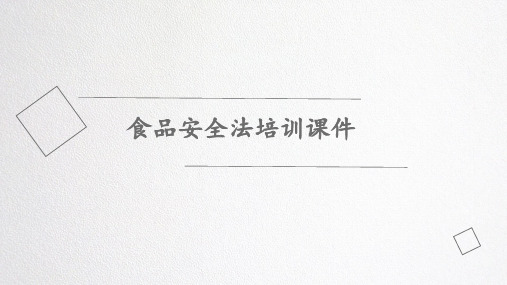 食品安全法培训课件